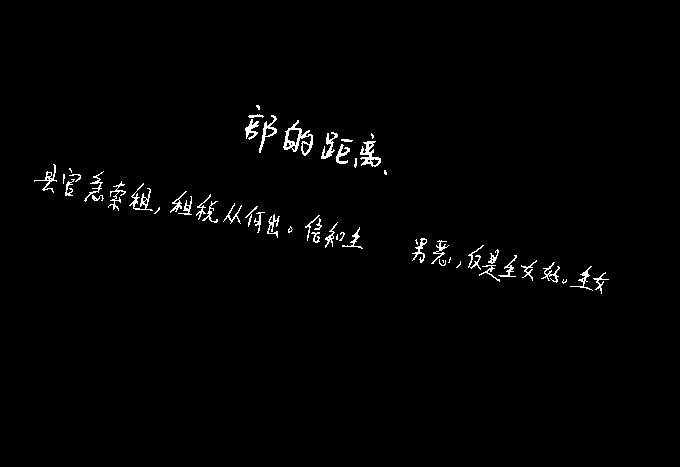 部的距离、
县官急索租，租税从何出。信知生 男恶，反是生女好。生女